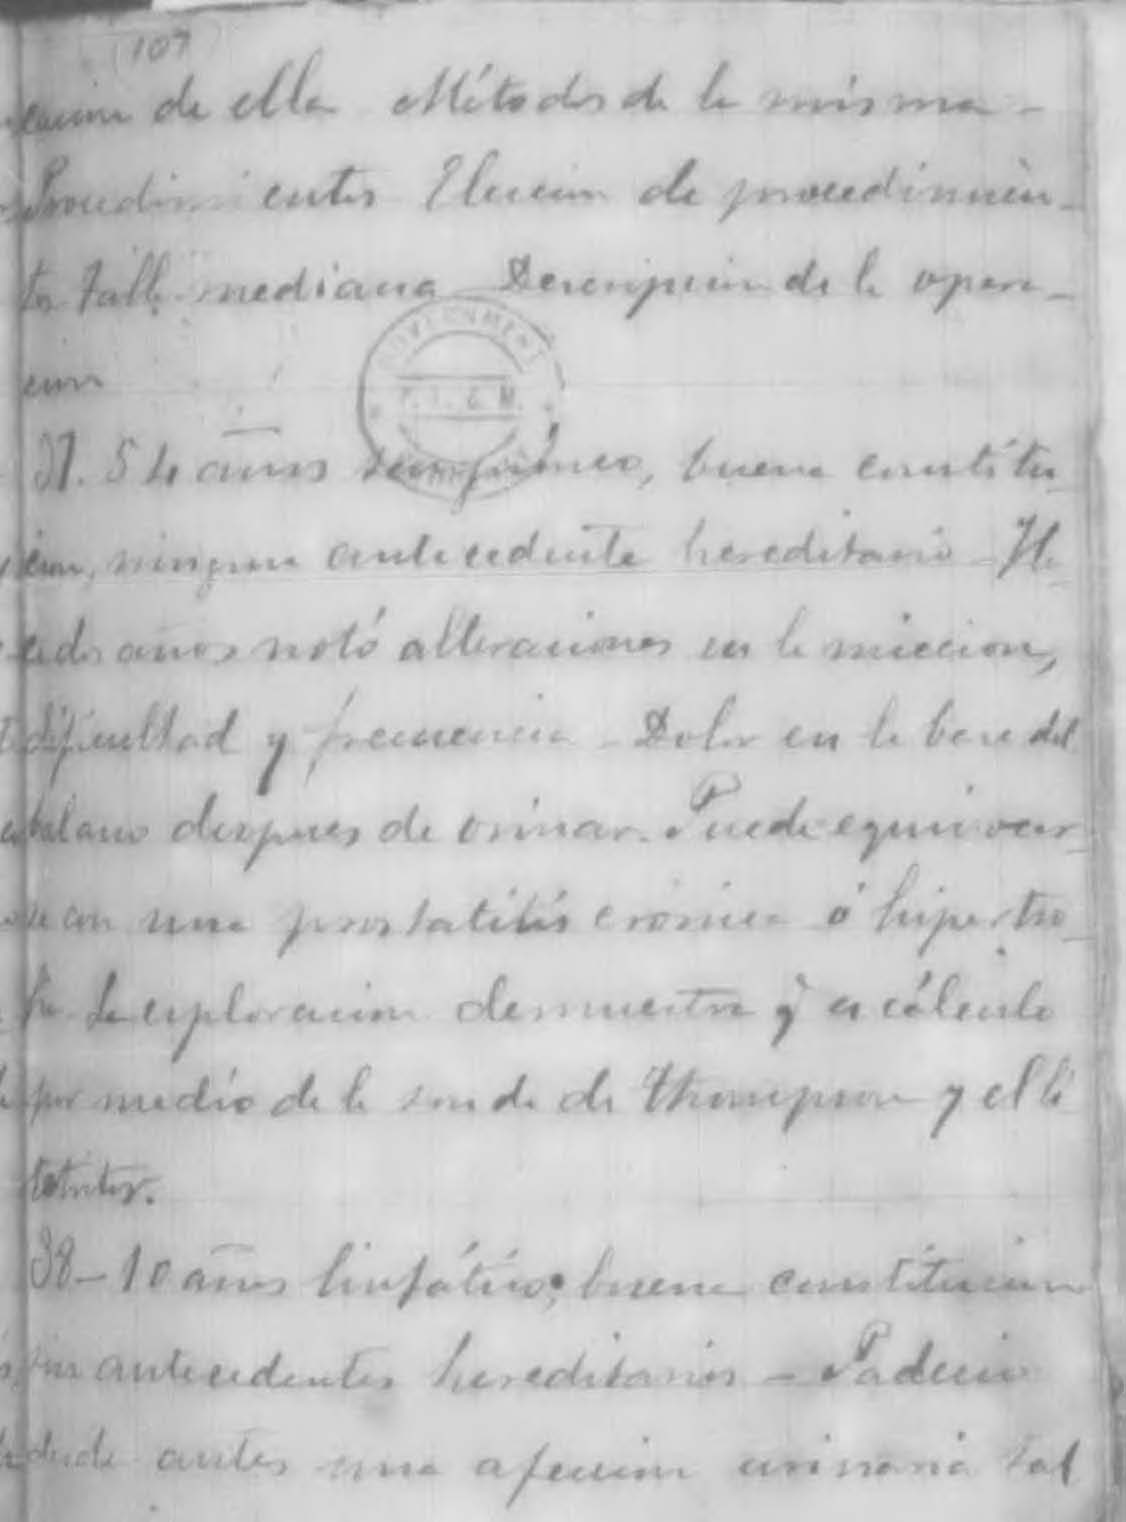 107
cacion de ella Métodos de la misma -
Procedimientos Eleccion de procedimien-
tos Talla mediana Descripcion de la opera-
cion
GOVERNMENT
37. 54 años sanguineo, buena constitu-
cion, ningun antecedente hereditario - Ha-
ce dos años notó alteraciones en la miccion,
dificultad y frecuencia - Dolor en la base del
balano despues de orinar. Puede equivocar-
se con una prostatitis crónica ó hipertro-
fia La exploracion demuestra q̃ es cálculo
por medio de la sonda de Thompson y el li
totritor.
38 - 10 años linfático, buena constitucion
sin antecedentes hereditarios - Padecia
desde antes una afeccion urinaria tal